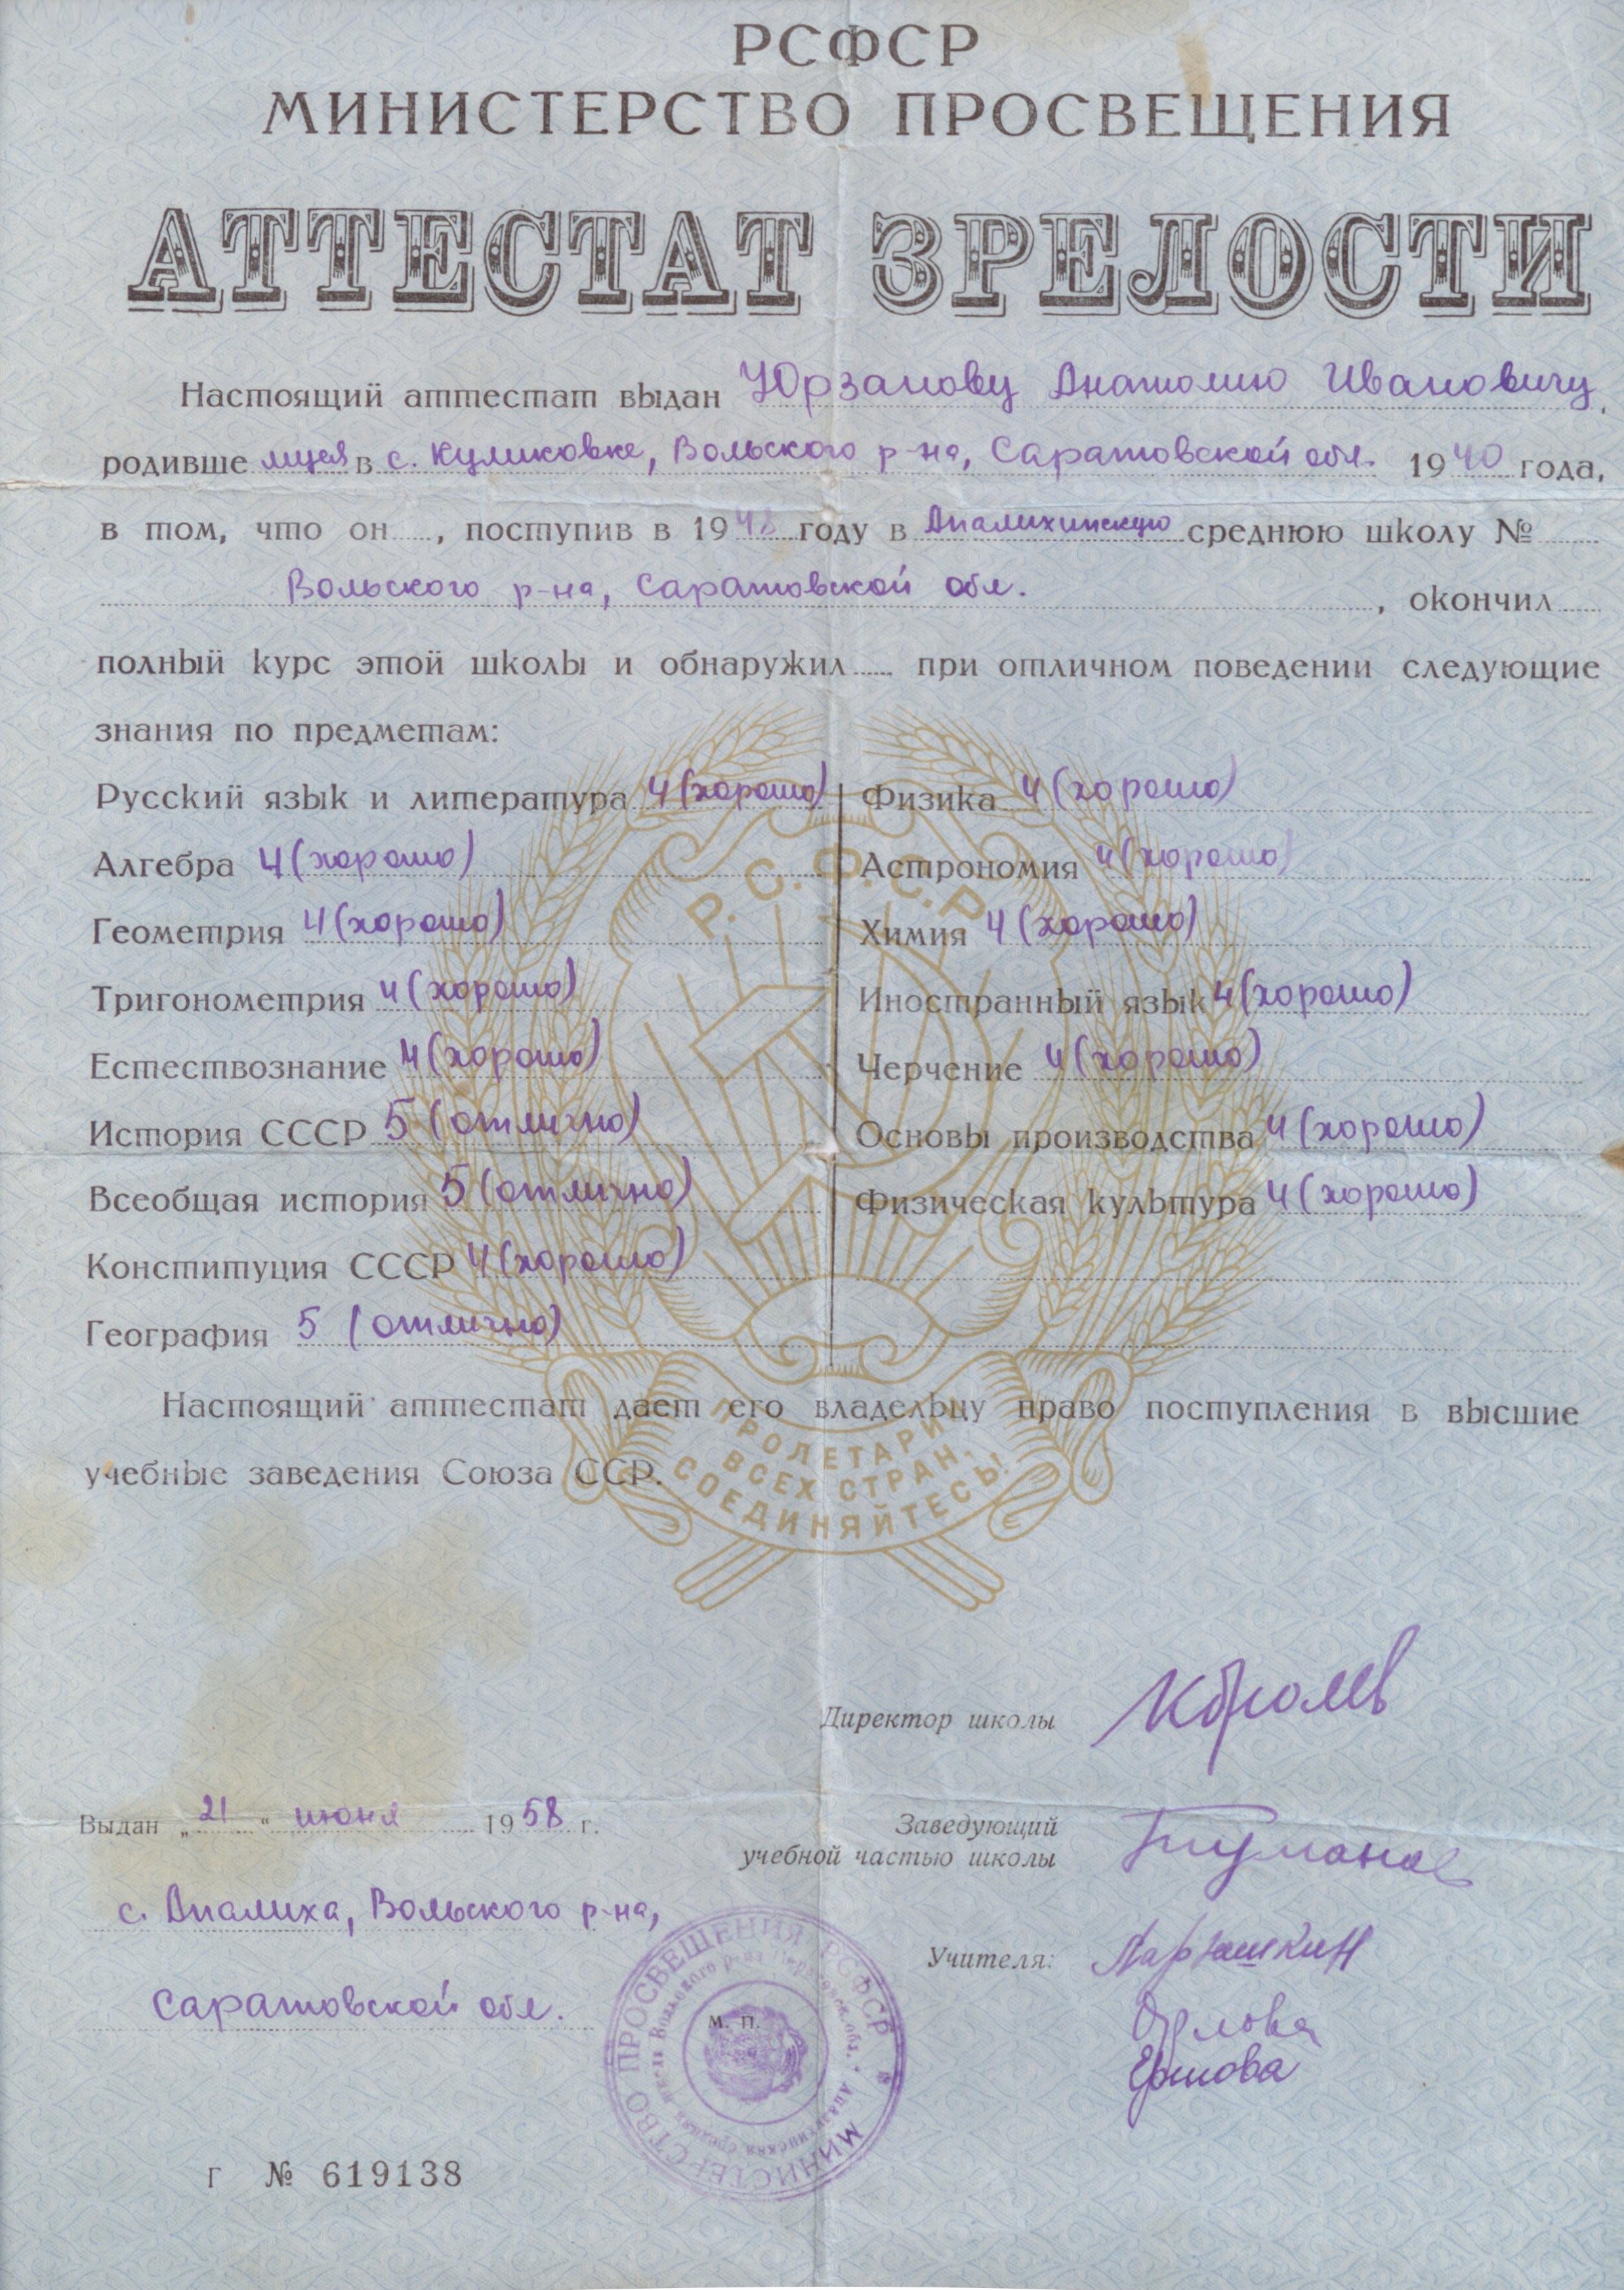 РСФСР
МИНИСТЕРСТВО ПРОСВЕЩЕНИЯ
АТТЕСТАТ ЗРЕЛОСТИ
Настоящий аттестат выдан Юрзанову Анатолию Ивановичу,
родившемуся в с. Куликовке, Вольского р-на, Саратовской обл. 1940 года,
в том, что он , поступив в 1948 году в Апалихинскую среднюю школу №
Вольского р-на, Саратовской обл. , окончил
полный курс этой школы и обнаружил при отличном поведении следующие
знания по предметам:
Русский язык и литература 4 (хорошо)
Алгебра 4 (хорошо)
Геометрия 4 (хорошо)
Тригонометрия 4 (хорошо)
Естествознание 4 (хорошо)
История СССР 5 (отлично)
Всеобщая история 5 (отлично)
Конституция СССР 4 (хорошо)
География 5 (отлично)
Физика 4 (хорошо)
Астрономия 4 (хорошо)
Химия 4 (хорошо)
Иностранный язык 4 (хорошо)
Черчение 4 (хорошо)
Основы производства 4 (хорошо)
Физическая культура 4 (хорошо)
Р.С.Ф.С.Р.
Настоящий аттестат дает его владельцу право поступления в высшие
учебные заведения Союза ССР.
ПРОЛЕТАРИИ
ВСЕХ СТРАН,
СОЕДИНЯЙТЕСЬ!
Директор школы Королев
Выдан „21“ июня 1958 г.
Заведующий
учебной частью школы
с. Апалиха, Вольского р-на,
Саратовской обл.
Учителя:
Орлова
Ершова
МИНИСТЕРСТВО ПРОСВЕЩЕНИЯ РСФСР
М. П.
Г № 619138